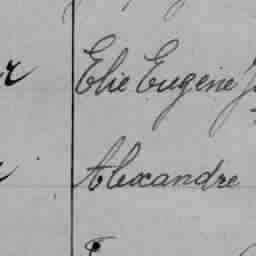 Elie Eugène
Alexandre